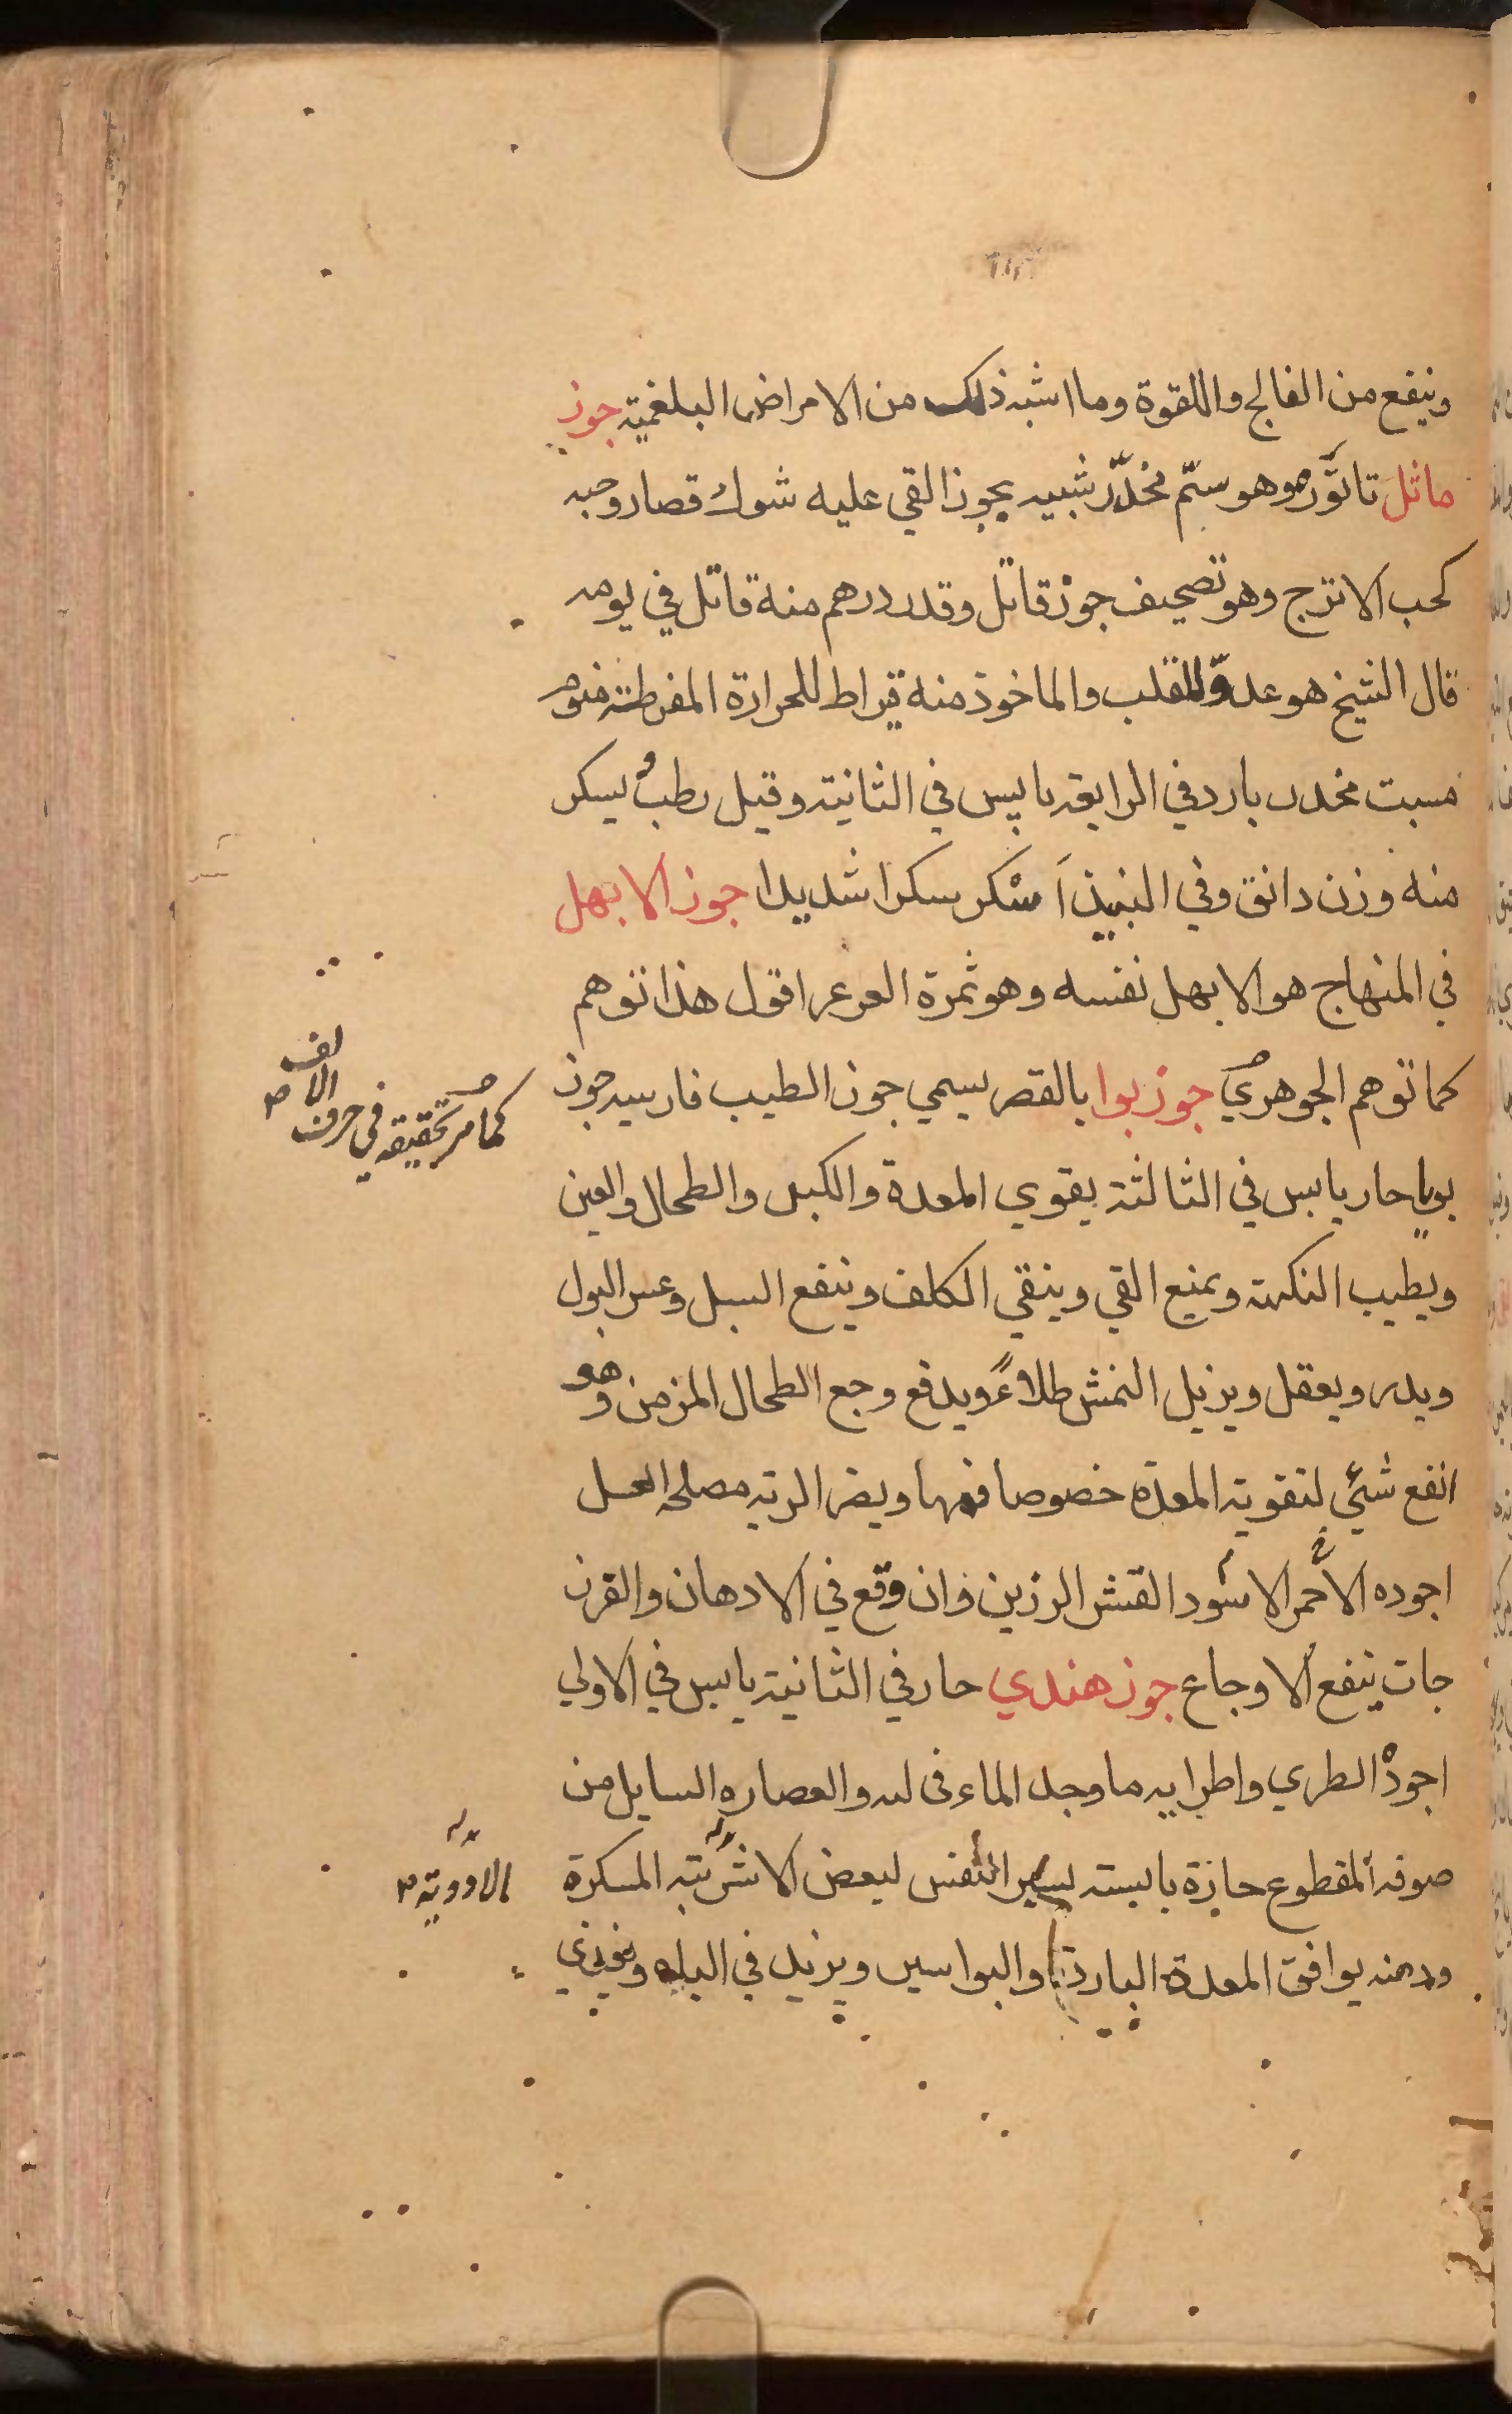 وينفع من الفالج واللقوة وما اشبه ذلك من الامراض البلغمية جوز
ماثل تاتوره وهو سمّ مخدّر شبيه بجوز القي عليه شوك قصار وحبه
كحب الاترج وهو تصحيف جوز قاتل وقدر درهم منه قاتل في يومه
قال الشيخ هو عدوّ للقلب والماخوذ منه قيراط للحرارة المفرطة منوم
مسبت مخدر بارد في الرابعة يابس في الثانية وقيل رطب يسكر
منه وزن دانق وفي النبيذ اَسْكر سكرا شديدا جوز الابهل
في المنهاج هو الابهل نفسه وهو ثمرة العرعر اقول هذا توهم
كما توهم الجوهري جوز بوا بالقصر يسمي جوز الطيب فارسيه جوز
كما مر تحقيقه في حرف الالف
بويا حار يابس في الثالثة يقوي المعدة والكبد والطحال والعين
ويطيب النكهة ويمنع القي وينقي الكلف وينفع السبل وعسر البول
ويدر ويعقل ويزيل النمش طلاءً ويدفع وجع الطحال المزمن وهو
انفع شئي لتقوية المعدة خصوصا فمها ويضر الرية مصلحه العسل
اجوده الاحمر الاسود القشر الرزين وان وقع في الادهان والفرز
جات ينفع الاوجاع جوز هندي حار في الثانية يابس في الاولي
اجوده الطري واطرا يه ما وجد الماء فى لبه والعصاره السايل من
صوفه المقطوع حارة يابسة النفس لبعض الاشربة المسكرة
الادوية
ودهنه يوافق المعدة الباردة والبواسير ويزيد في الباه ويغذي